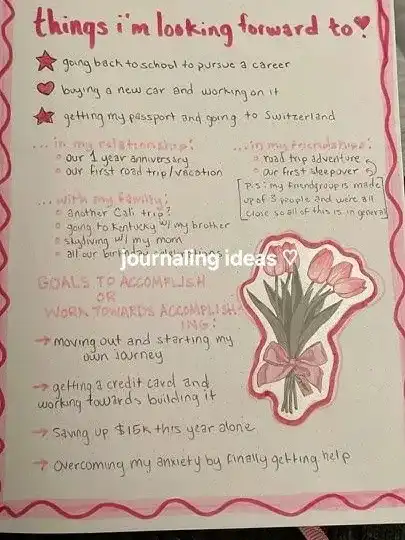 things i'm looking forward to!
going back to school to pursue a career
buying a new car and working on it
getting my passport and going to Switzerland
...in my relationship:
our 1 year anniversary
our first road trip/vacation
...in my friendships:
road trip adventure
our first sleepover
[p.s: my friendgroup is made
up of 3 people and were all
close so all of this is in general]
...with my family:
another Cali trip?
going to Kentucky w/ my brother
skydiving w/ my mom
all our
journaling ideas ♡
GOALS TO ACCOMPLISH
OR
WORK TOWARDS ACCOMPLISH-
ING:
→ moving out and starting my
own journey
→ getting a credit card and
working towards building it
→ Saving up $15K this year alone
→ Overcoming my anxiety by finally getting help